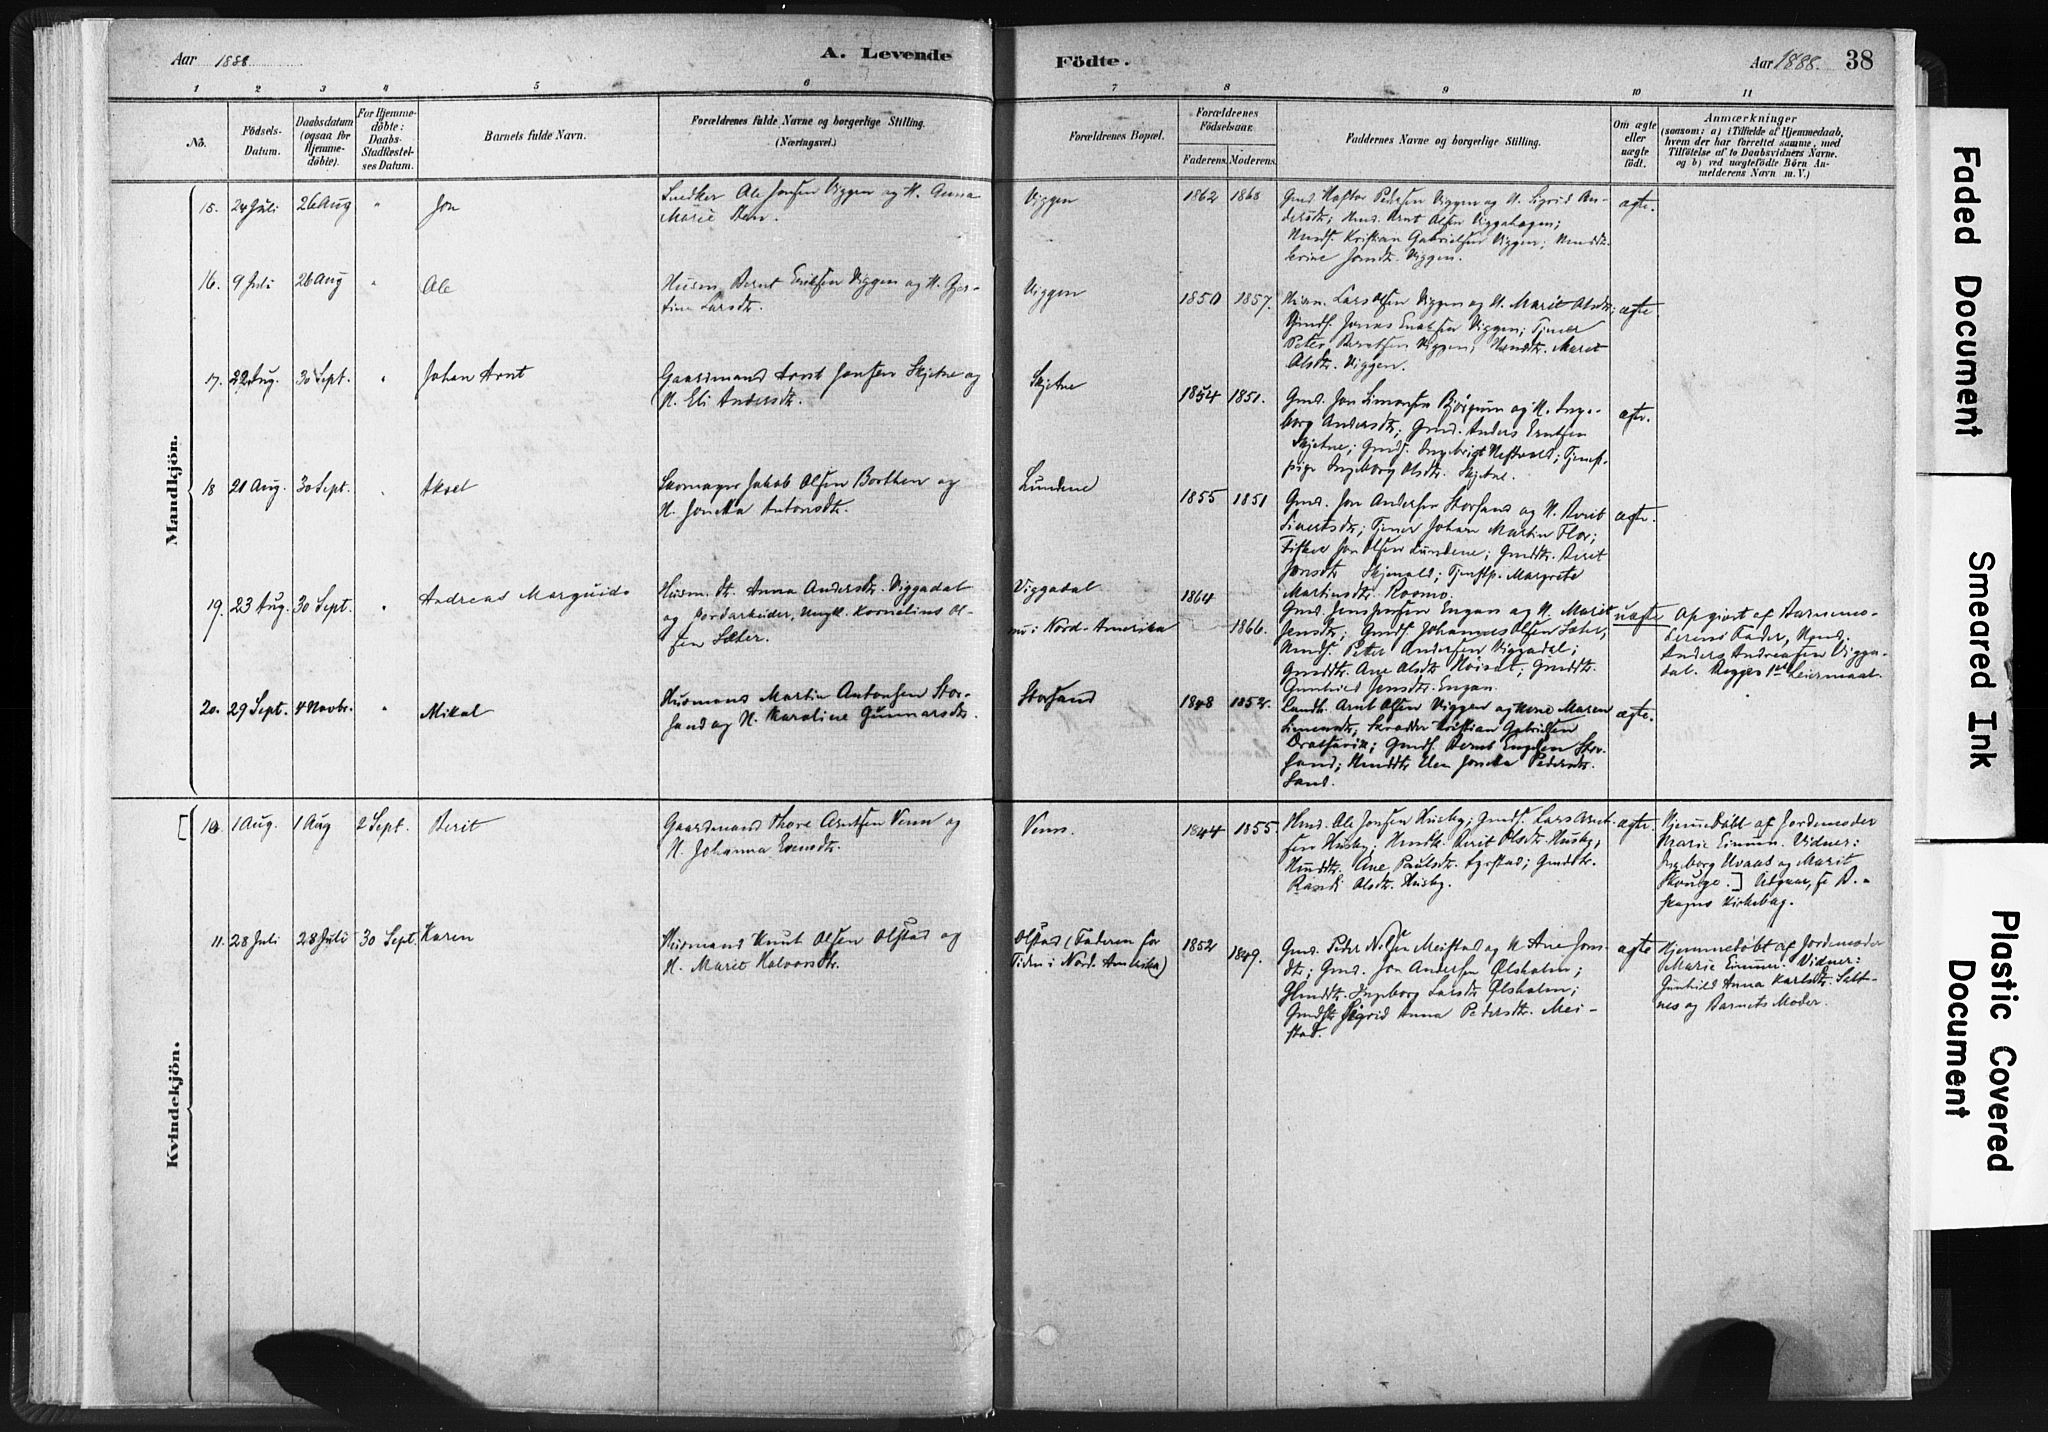 Aar 1888
A. Levende
Födte.
Aar 1888. 38
1 2 3 4 5 6 7 8 9 10 11
No.
Födsels-
Datum.
Daabsdatum
(ogsaa for
Hjemme-
döbte).
For Hjemme-
döbte:
Daabs-
Stadfæstel-
ses Datum.
Barnets fulde Navn.
Forældrenes fulde Navne og borgerlige Stilling.
(Næringsvei.)
Forældrenes Bopæl.
Forældrenes
Födselsaar.
Faderens. Moderens.
Faddernes Navne og borgerlige Stilling.
Om ægte
eller
uægte
födt.
Anmærkninger
(saasom: a) i Tilfælde af Hjemmedaab,
hvem der har forrettet samme, med
Tilföielse af to Daabsvidners Navne.
og b) ved uægtefödte Börn An-
melderens Navn m. V.)
Mandkjön.
15. 24 Juli 26 Aug " Jon
Snedker Ole Jonsen Viggen og H. Gunna
Marie
Viggen
1862 1868
Gmd. Pedersen Viggen og H. Sigrid An-
dersdtr; Hmd. Arnt Olsen Viggahagen;
Kristian Gabrielsen Viggen;
Serine Jonsdtr. Viggen.
ægte.
16. 9 Juli 26 Aug " Ole
Husm. Bernt Eriksen Viggen og H. Gjer-
tine Larsdtr.
Viggen
1850 1857.
Husm. Lars Olsen Viggen og H. Marit Olsdtr;
Jonas Viggen; Tjener
Peter Berntsen Viggen; Marit
Olsdtr. Viggen.
ægte.
17. 22 Aug. 30 Sept. " Johan Arnt
Gaardmand Arnt Jonsen Skjetne og
H. Eli Andersdtr.
Skjetne
1854 1851.
Gmd. Jon Simonsen Bjørgum og H. Inge-
borg Andersdtr; Gmd. Anders Arntsen
Skjetne; Gmds. Ingebrigt; Tjenest-
pige Ingeborg Olsdtr. Skjetne.
ægte.
18 21 Aug. 30 Sept. " Aksel
Skomager Jakob Olsen Borthen og
H. Jonetta Antonsdtr.
Lundene
1855 1851
Gmd. Jon Andersen Storsand og H. Berit
Sivertsdtr; Tjener Johan Martin Flor;
Fisker Jon Olsen Lundene; Gmddtr. Berit
Jonsdtr Skjenald; Tjenstp. Margrete
Martinsdtr. Roomo.
ægte.
19. 23 Aug. 30 Sept. " Andreas Marguido
Husm. dtr. Anna Andersdtr. Viggadal
og Jordarbeider, Ungk. Kornelius Ol-
sen Sæter.
Viggadal
nu i Nord-Amerika
1864
1866.
Gmd. Jens Jensen Engan og H. Marit
Jensdtr; Gmds. Johannes Olsen Sæter,
Hmds. Peter Andersen Viggadal;
Gmddtr. Ane Olsdtr Høiset; Gmddtr.
Gunhild Jensdtr. Engan.
uægte
Opgivet af Barnemo-
derens Fader, Hmd.
Anders Andreasen Vigga-
dal. Begges 1ste Leiermaal.
20. 29 Sept. 4 Novbr. " Mikal
Husmand Martin Antonsen Stor-
sand og H. Karoline Gunnarsdtr.
Storsand
1848 1852.
Landh. Arnt Olsen Viggen og Kone Maren
Simonsdtr, Skrædder Kristian Gabrielsen
; Gmds. Bernt Engelsen Stor-
sand; Hmddtr Elen Jonetta Pedersdtr.
Sand.
ægte.
Kvindekjön.
[10. 1 Aug. 1 Aug 2 Sept. Berit
Gaardmand Thore Arntsen Venn og
H. Johanna Evensdtr.
Venn.
1844 1855.
Hmd. Ole Jonsen Husby; Gmds. Lars Arnt-
sen Husby; Hmdk. Berit Olsdtr. Husby,
Hmddtr. Ane Paulsdtr. Fyrstad; Gmddtr.
Randi Olsdtr. Husby.
ægte.
Hjemmedøbt af Jordemoder
Marie Eimun. Vidner:
Ingeborg Hvaas og Marit
Skauge.] Udgaar, se B.-
skogns Kirkebog.
11. 28 Juli 28 Juli 30 Sept. Karen
Husmand Knut Olsen Olstad og
H. Marit Halvorsdtr.
Olstad (Faderen for
Tiden i Nord-Amerika)
1852 1849.
Gmd. Peder Nilsen Meistad og H Ane Jons-
dtr; Gmd. Jon Andersen Ølsholm;
Hmddtr. Ingeborg Larsdtr Ølsholm;
Gmddtr Sigrid Anna Pedersdtr. Mei-
stad.
ægte
Hjemmedøbt af Jordemoder
Marie Eimun. Vidner:
Gunhild Anna Karlsdtr. Salt-
nes og Barnets Moder.
Faded Document
Smeared Ink
Plastic Covered
Document